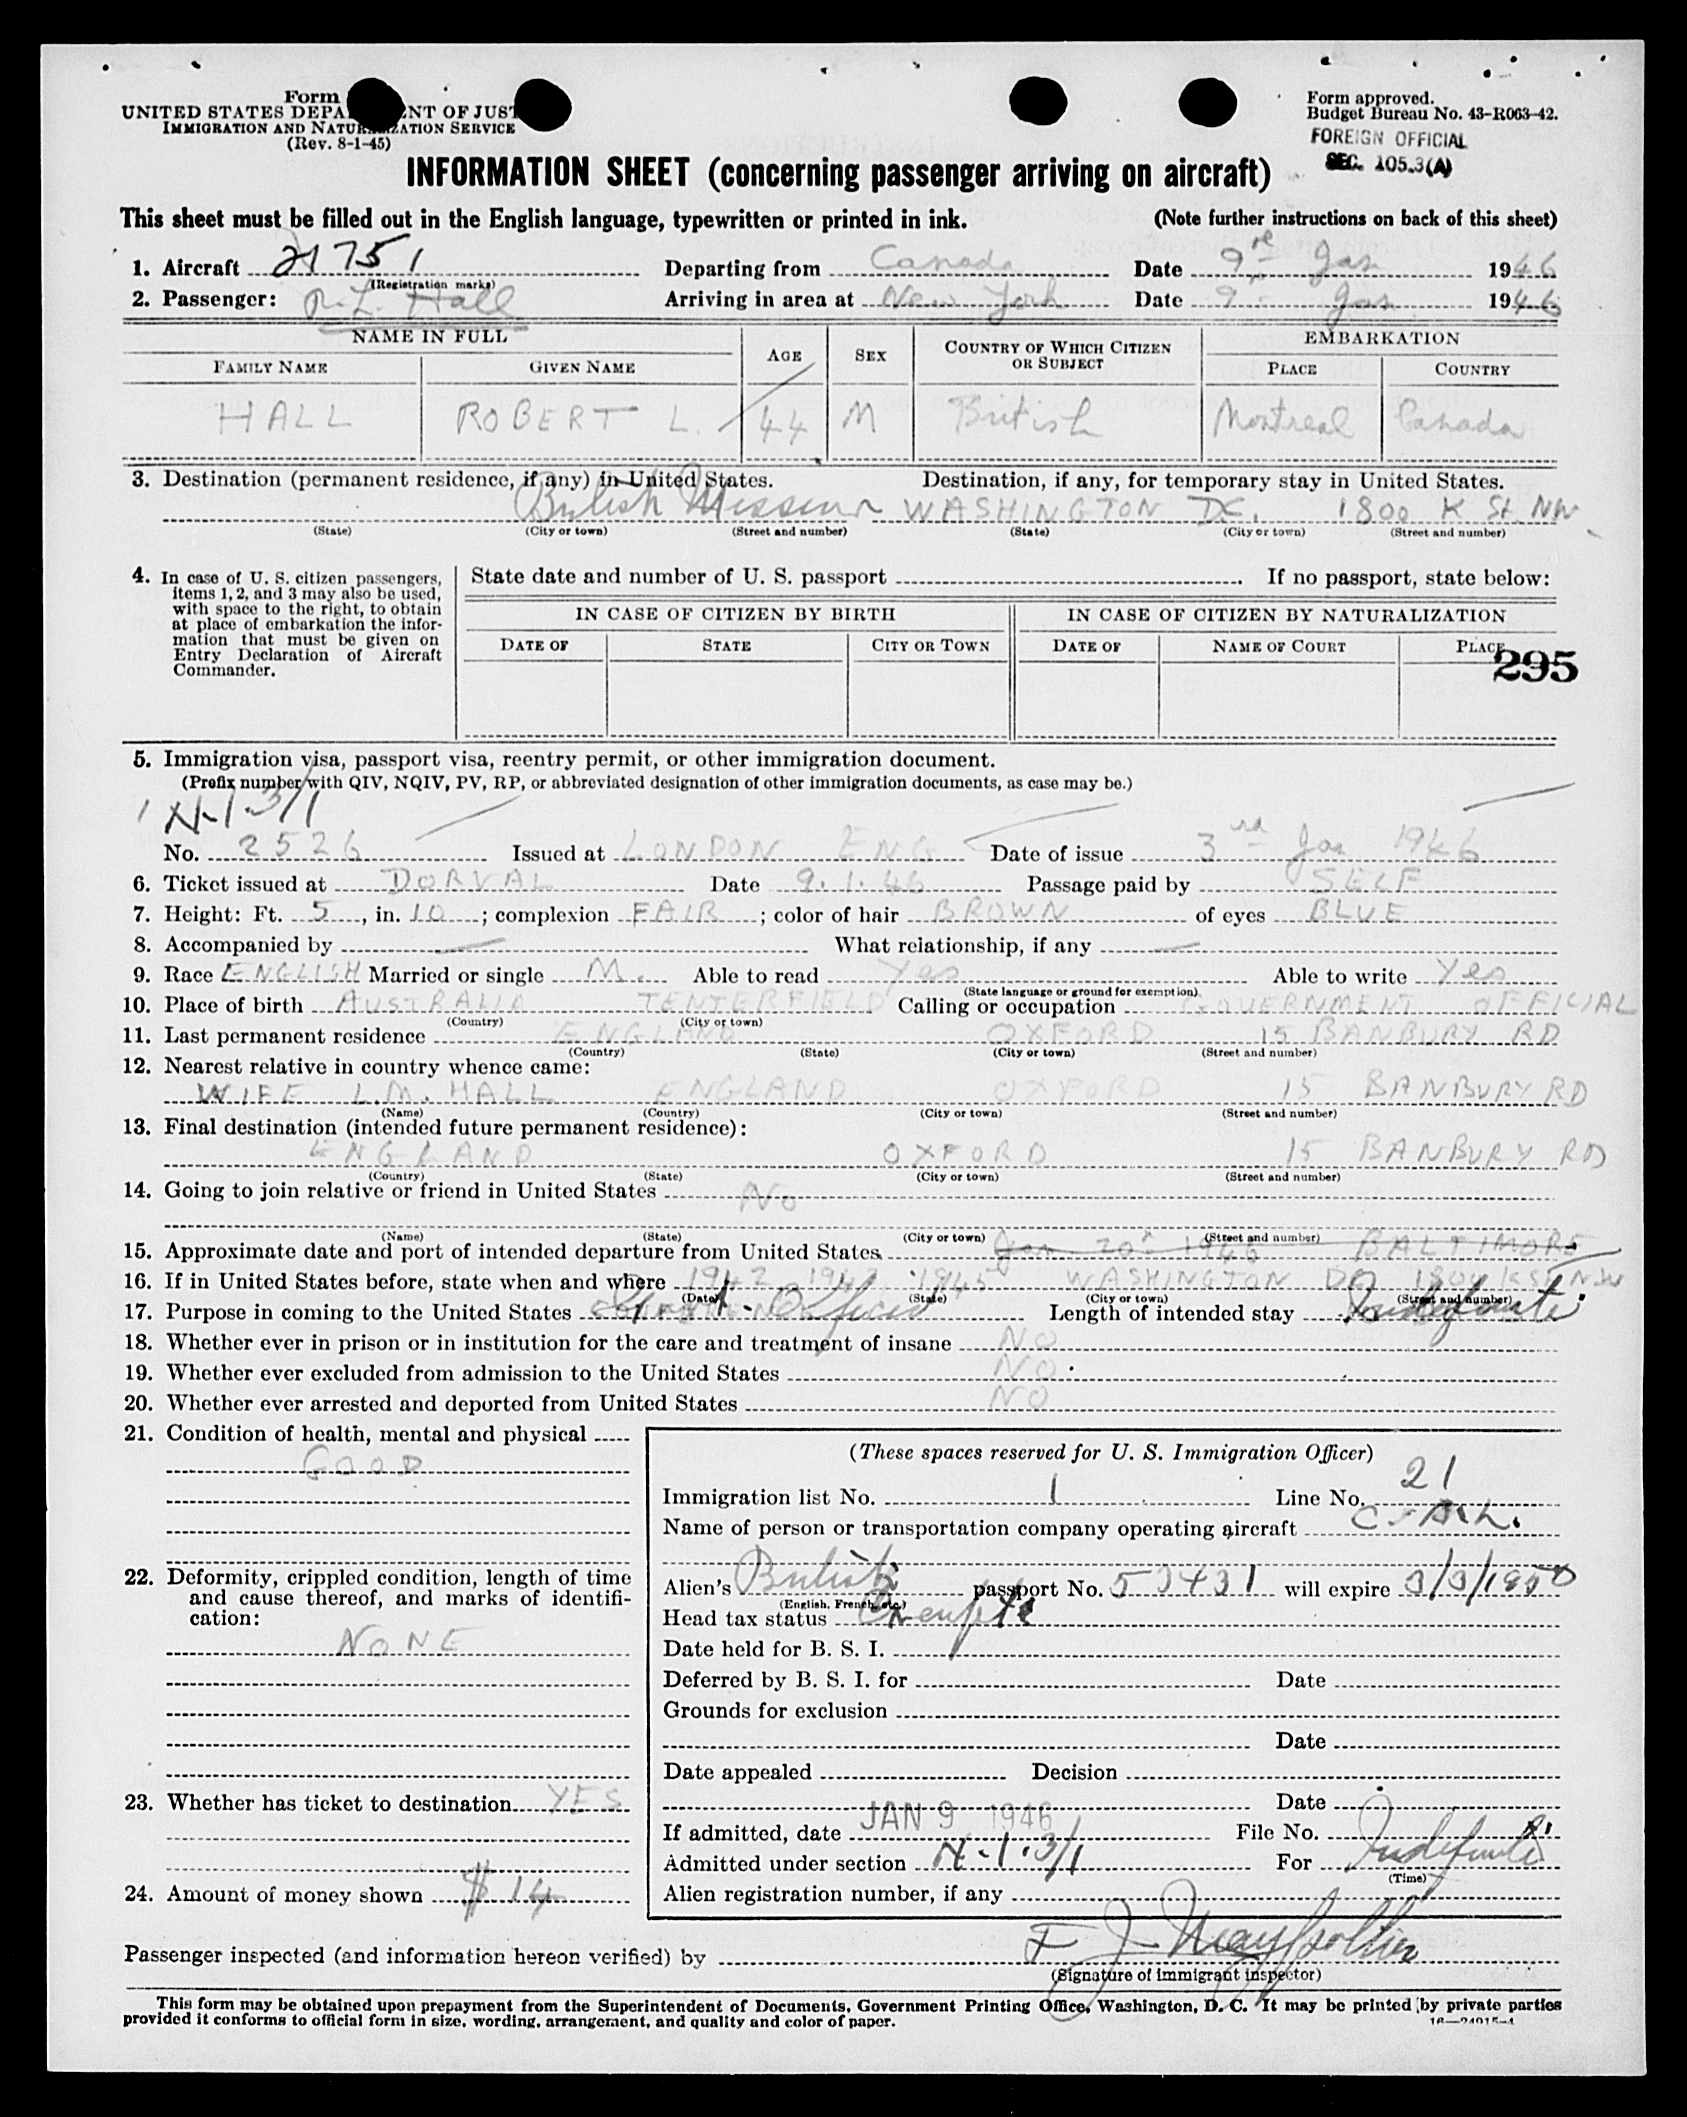 Form
UNITED STATES DEPA NT OF JUST
IMMIGRATION AND NATURALIZATION SERVICE
(Rev. 8-1-45)
Form approved.
Budget Bureau No. 43-R063-42.
FOREIGN OFFICIAL
SEC. 105.3(A)
INFORMATION SHEET (concerning passenger arriving on aircraft)
This sheet must be filled out in the English language, typewritten or printed in ink. (Note further instructions on back of this sheet)
1. Aircraft 21751 Departing from Canada Date 9 Jan 1946
(Registration marks)
2. Passenger: R. L. Hall Arriving in area at New York Date 9 Jan 1946
NAME IN FULL AGE SEX COUNTRY OF WHICH CITIZEN OR SUBJECT EMBARKATION
FAMILY NAME GIVEN NAME PLACE COUNTRY
HALL ROBERT L. 44 M British Montreal Canada
3. Destination (permanent residence, if any) in United States. Destination, if any, for temporary stay in United States.
British Mission WASHINGTON DC. 1800 K St. NW
(State) (City or town) (Street and number) (State) (City or town) (Street and number)
4. In case of U. S. citizen passengers, items 1, 2, and 3 may also be used, with space to the right, to obtain at place of embarkation the information that must be given on Entry Declaration of Aircraft Commander.
State date and number of U. S. passport . If no passport, state below:
IN CASE OF CITIZEN BY BIRTH IN CASE OF CITIZEN BY NATURALIZATION
DATE OF STATE CITY OR TOWN DATE OF NAME OF COURT PLACE
295
5. Immigration visa, passport visa, reentry permit, or other immigration document.
(Prefix number with QIV, NQIV, PV, RP, or abbreviated designation of other immigration documents, as case may be.)
N-1.3/1
No. 2526 Issued at LONDON ENG Date of issue 3rd Jan 1946
6. Ticket issued at DORVAL Date 9.1.46 Passage paid by SELF
7. Height: Ft. 5, in. 10; complexion FAIR; color of hair BROWN of eyes BLUE
8. Accompanied by — What relationship, if any —
9. Race ENGLISH Married or single M. Able to read Yes Able to write Yes
(State language or ground for exemption)
10. Place of birth AUSTRALIA TENTERFIELD Calling or occupation GOVERNMENT OFFICIAL
(Country) (City or town)
11. Last permanent residence ENGLAND OXFORD 15 BANBURY RD
(Country) (State) (City or town) (Street and number)
12. Nearest relative in country whence came:
WIFE L.M. HALL ENGLAND OXFORD 15 BANBURY RD
(Name) (Country) (City or town) (Street and number)
13. Final destination (intended future permanent residence):
ENGLAND OXFORD 15 BANBURY RD
(Country) (State) (City or town) (Street and number)
14. Going to join relative or friend in United States No
(Name) (State) (City or town) (Street and number)
15. Approximate date and port of intended departure from United States Jan 20 1946 BALTIMORE
16. If in United States before, state when and where 1942 1943 1945 WASHINGTON DC 1800 K St NW
(Date) (State) (City or town) (Street and number)
17. Purpose in coming to the United States Official Length of intended stay Indefinite
18. Whether ever in prison or in institution for the care and treatment of insane NO
19. Whether ever excluded from admission to the United States NO
20. Whether ever arrested and deported from United States NO
21. Condition of health, mental and physical
GOOD
22. Deformity, crippled condition, length of time and cause thereof, and marks of identification:
NONE
23. Whether has ticket to destination YES
24. Amount of money shown $14
(These spaces reserved for U. S. Immigration Officer)
Immigration list No. 1 Line No. 21
Name of person or transportation company operating aircraft
Alien's British passport No. 53431 will expire 3/3/1950
(English, French, etc.)
Head tax status Exempt
Date held for B. S. I.
Deferred by B. S. I. for Date
Grounds for exclusion
Date
Date appealed Decision
Date
If admitted, date JAN 9 1946 File No.
Admitted under section N-1.3/1 For Indefinite
(Time)
Alien registration number, if any
Passenger inspected (and information hereon verified) by F J
(Signature of immigrant inspector)
This form may be obtained upon prepayment from the Superintendent of Documents, Government Printing Office, Washington, D. C. It may be printed by private parties
provided it conforms to official form in size, wording, arrangement, and quality and color of paper.